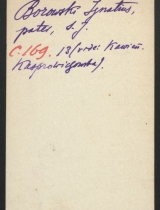 Borowski Ignatius,
pater, S. J.
C. 169. 13 (vide: Kamień.
Kasprowiczowska).